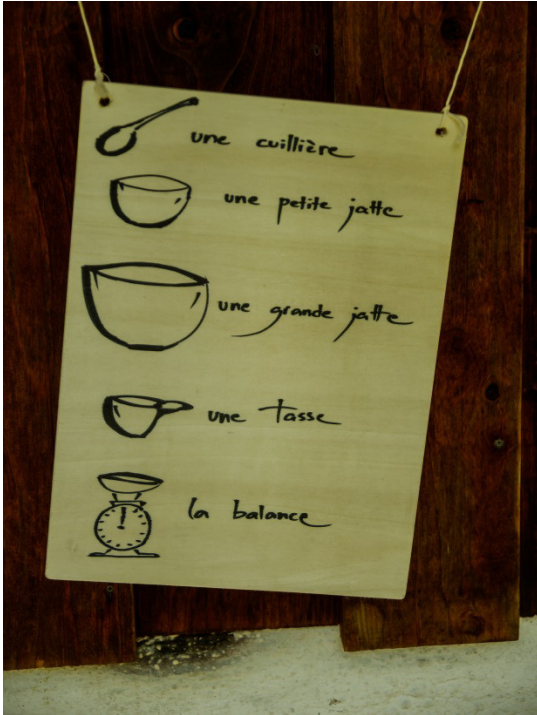 une cuillière
une petite jatte
une grande jatte
une tasse
la balance